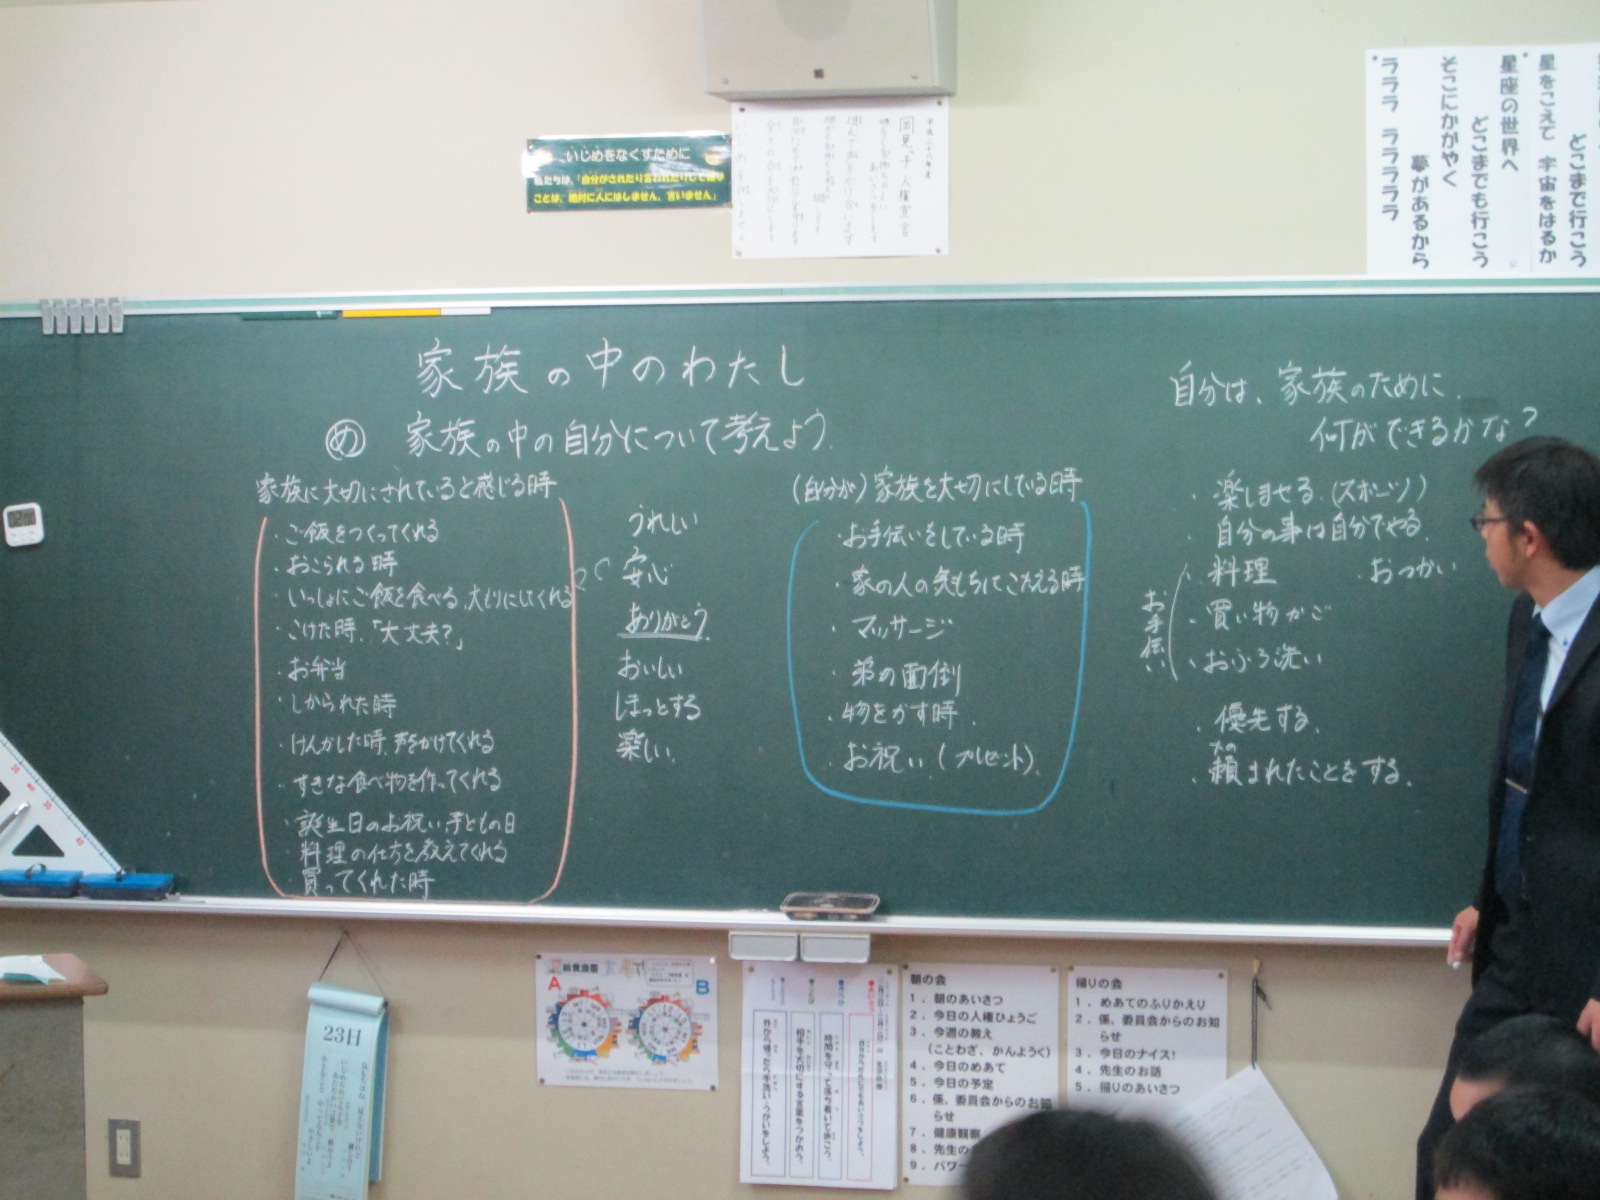 いじめをなくすために
私たちは、「自分がされたり言われたりして嫌な
ことは、絶対に人にはしません、言いません」
子ども人権宣言
どこまで行こう
星をこえて 宇宙をはるか
星座の世界へ
どこまでも行こう
そこにかがやく
夢があるから
ラララ ララララララ
家族の中のわたし
め 家族の中の自分について考えよう。
家族に大切にされていると感じる時
・ご飯をつくってくれる
・おこられる時
・いっしょにご飯を食べる、大もりにしてくれる
・こけた時、「大丈夫?」
・お弁当
・しかられた時
・けんかした時、声をかけてくれる
・すきな食べ物を作ってくれる
・誕生日のお祝い、子どもの日
・料理の仕方を教えてくれる
・買ってくれた時
うれしい
安心
ありがとう
おいしい
ほっとする
楽しい。
(自分が)家族を大切にしている時
・お手伝いをしている時
・家の人の気もちにこたえる時
・マッサージ
・弟の面倒
・物をかす時。
・お祝い。(プレゼント)
自分は、家族のために、
何ができるかな?
・楽しませる。(スポーツ)
・自分の事は自分でやる。
お手伝い
・料理 ・おつかい
・買い物かご
・おふろ洗い
・優先する。
たの
・頼まれたことをする。
23日
給食当番
A
B
時間を守って落ち着いて過ごそう。
相手を大切にする言葉をつかおう。
外から帰ったら手洗い・うがいをしよう。
朝の会
1. 朝のあいさつ
2. 今日の人権ひょうご
3. 今週の教え
(ことわざ、かんようく)
4. 今日のめあて
5. 今日の予定
6. 係、委員会からのお知
らせ
7. 健康観察
8. 先生の
9. パワー
帰りの会
1. めあてのふりかえり
2. 係、委員会からのお知
らせ
3. 今日のナイス!
4. 先生のお話
5. 帰りのあいさつ